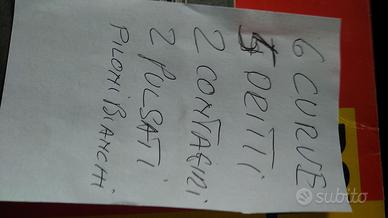 6 CURVE
5 DRITTI
2 CONTAGIRI
2 PULSATI
PILONI BIANCHI
subito